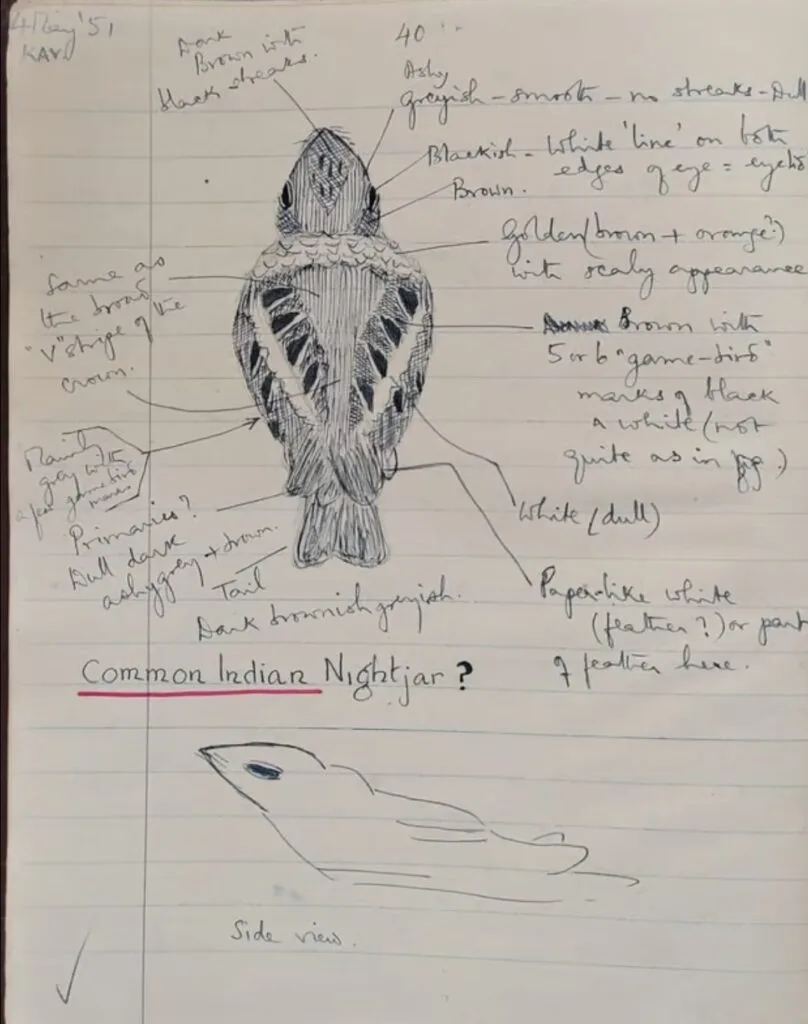 4 May '51
KAV.
40
Dark
Brown with
black streaks.
Ashy
greyish – smooth – no streaks – Dull
Blackish – White 'line' on both
edges of eye =
Brown.
Golden (brown + orange?)
with scaly appearance
Same as
the broad
"V" stripe of the
crown.
Brown with
5 or 6 "game-bird"
marks of black
& white (not
quite as in fig.)
Mainly
grey with
a few game bird
marks
White (dull)
Primaries?
Dull dark
ashy grey + brown.
Tail
Dark brownish greyish.
Paper-like white
(feather?) or part
of feather here.
Common Indian Nightjar?
Side view.